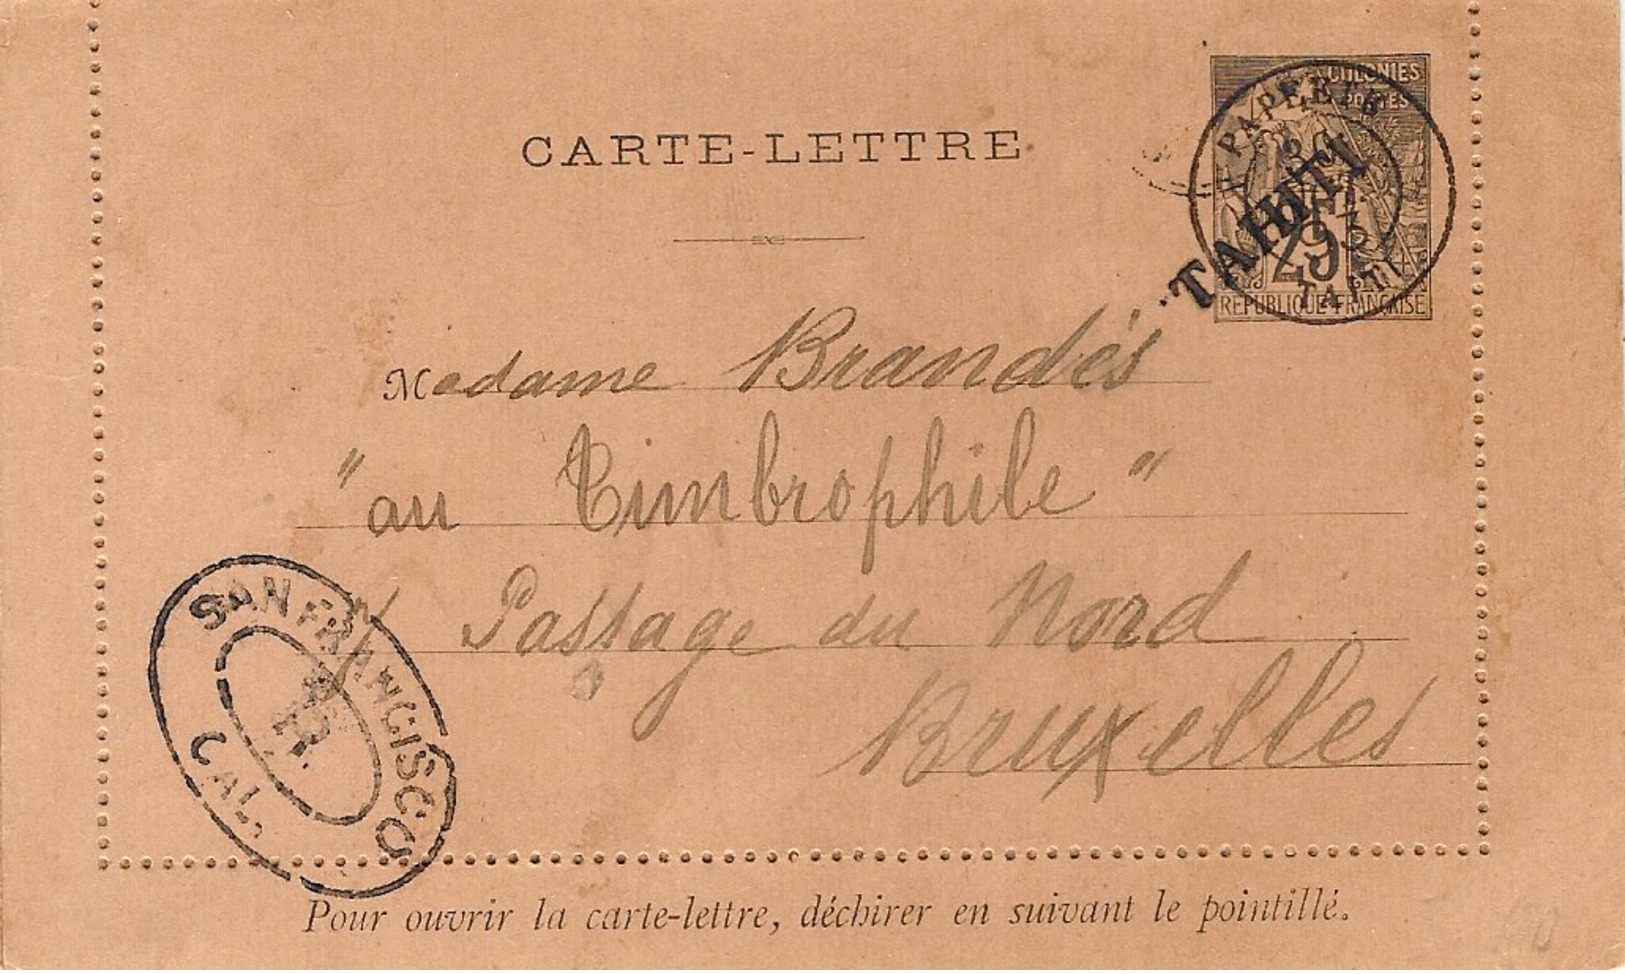 CARTE-LETTRE
COLONIES
POSTES
PAPEETE
93
TAITI
TAHITI
25
REPUBLIQUE FRANÇAISE
Madame Brandès
"au Timbrophile"
Passage du Nord
Bruxelles
SAN FRANCISCO
CAL.
Pour ouvrir la carte-lettre, déchirer en suivant le pointillé.